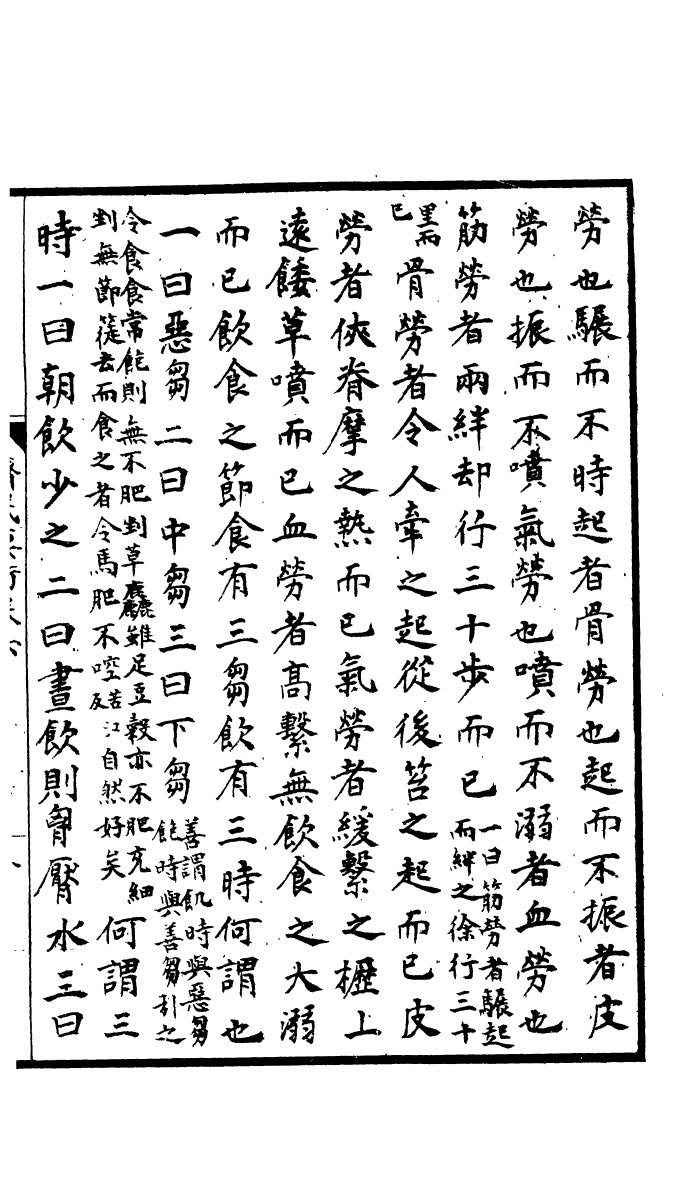 勞也驏而不時起者骨勞也起而不振者皮
勞也振而不噴氣勞也噴而不溺者血勞也
筋勞者兩絆却行三十歩而已一曰筋勞者驏起而絆之徐行三十
里而已骨勞者令人牽之起從後笞之起而已皮
勞者俠脊摩之熱而已氣勞者緩繫之櫪上
遠餧草噴而已血勞者髙繫無飲食之大溺
而已飲食之節食有三芻飲有三時何謂也
一曰惡芻二曰中芻三曰下芻善謂飢時與惡芻飽時與善芻引之
令食食常飽則無不肥剉草麤雖足豆榖亦不肥充細剉無節簁去而食之者令馬肥不啌苦江反自然好矣何謂三
時一曰朝飲少之二曰晝飲則胷厴水三曰